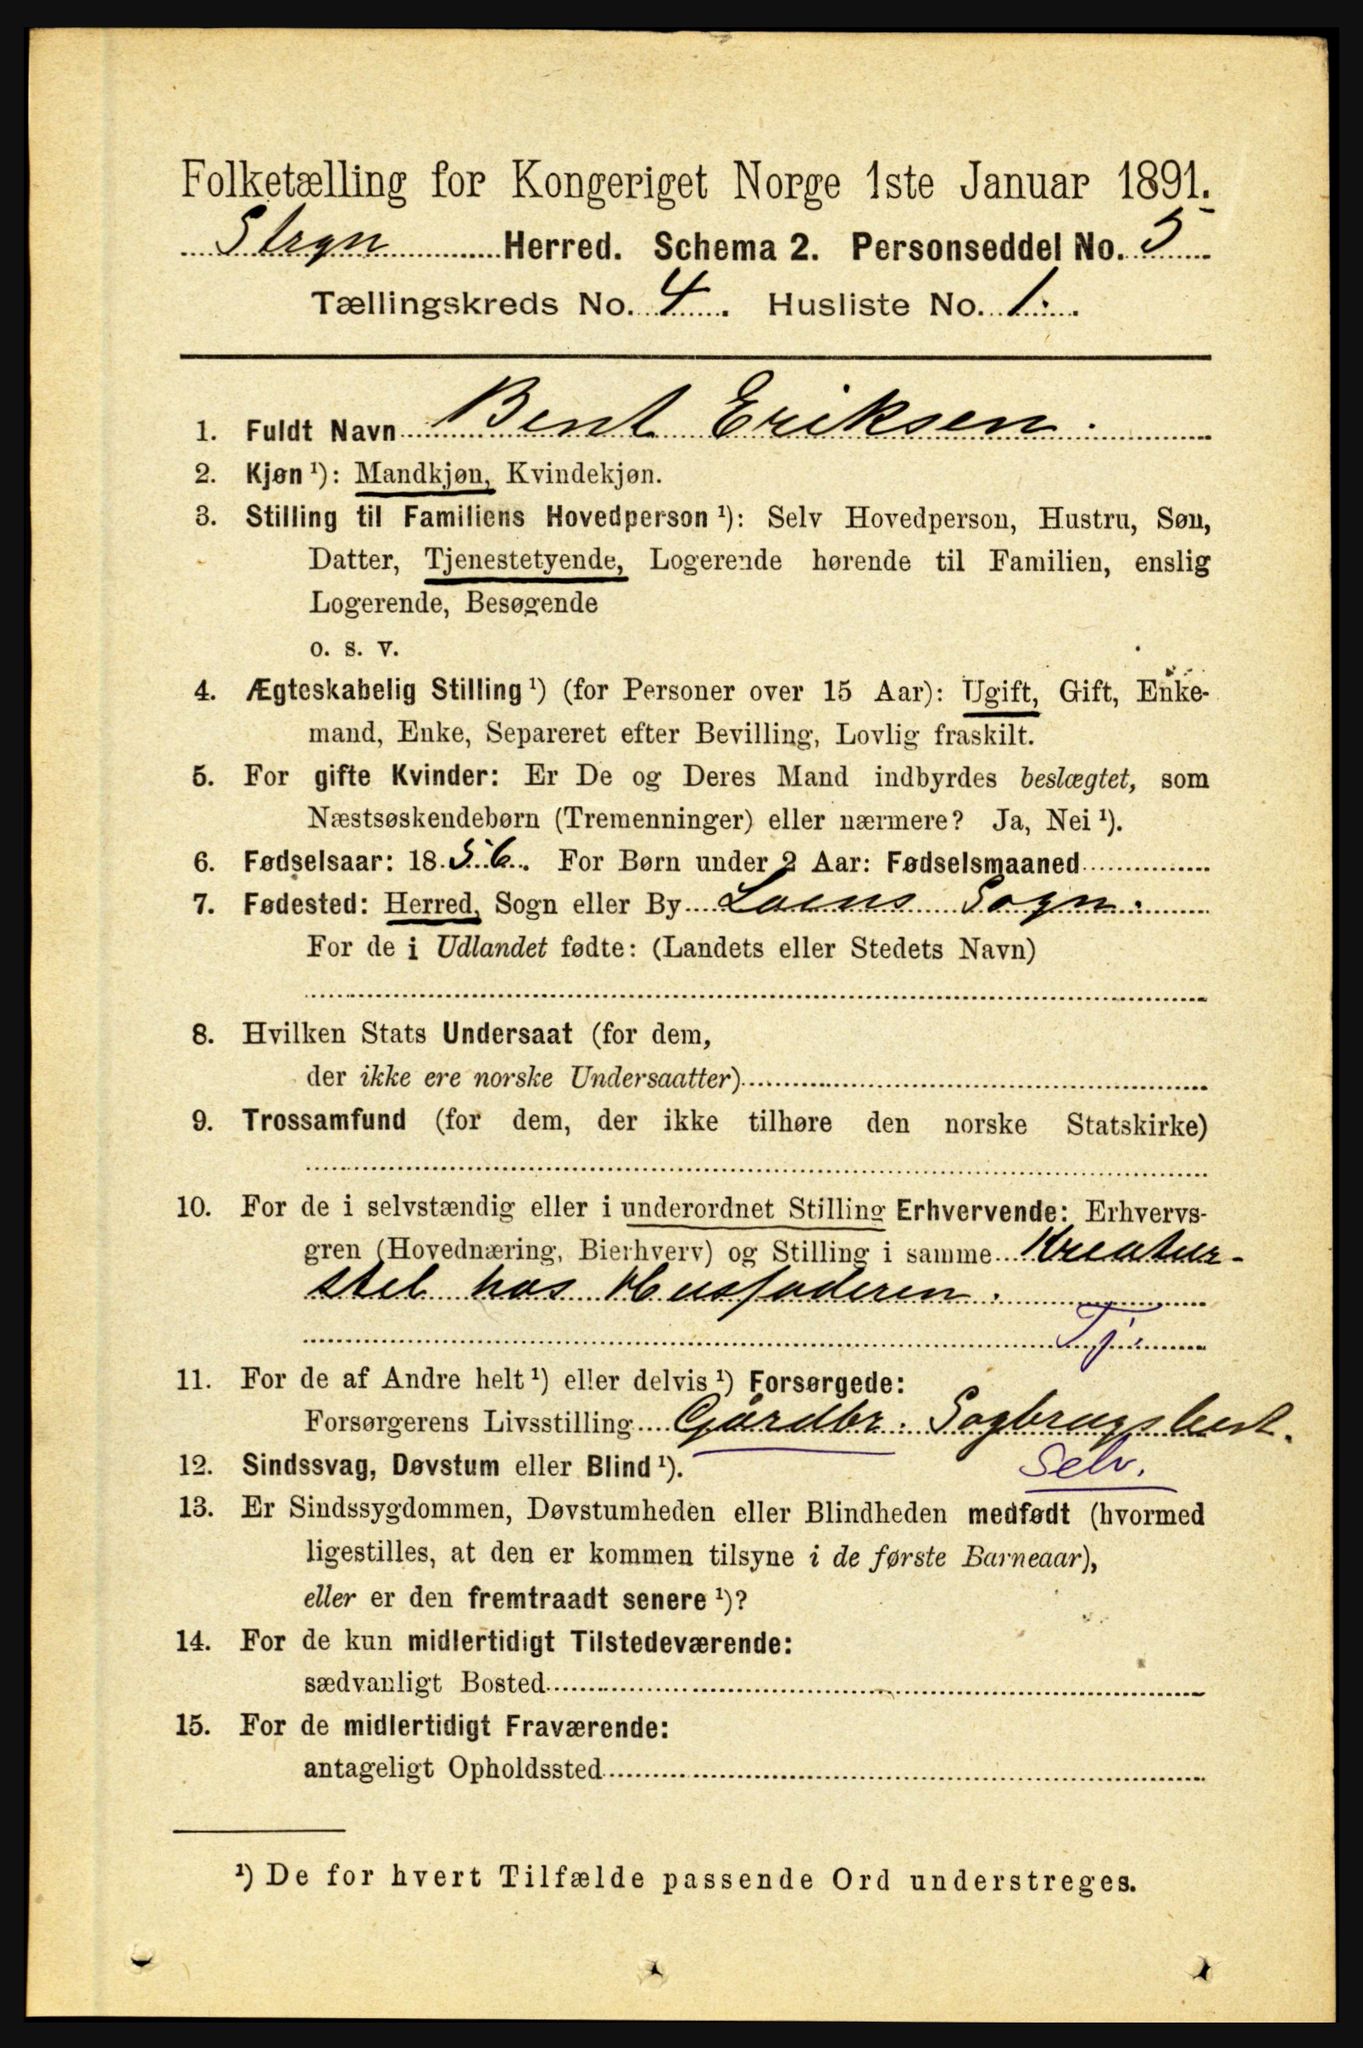 Folketælling for Kongeriget Norge 1ste Januar 1891.
Stryn Herred. Schema 2. Personseddel No. 5
Tællingskreds No. 4. Husliste No. 1.
1. Fuldt Navn Bent Eriksen.
2. Kjøn ¹): Mandkjøn, Kvindekjøn.
3. Stilling til Familiens Hovedperson ¹): Selv Hovedperson, Hustru, Søn,
Datter, Tjenestetyende, Logerende hørende til Familien, enslig
Logerende, Besøgende
o. s. v.
4. Ægteskabelig Stilling ¹) (for Personer over 15 Aar): Ugift, Gift, Enke-
mand, Enke, Separeret efter Bevilling, Lovlig fraskilt.
5. For gifte Kvinder: Er De og Deres Mand indbyrdes beslægtet, som
Næstsøskendebørn (Tremenninger) eller nærmere? Ja, Nei ¹).
6. Fødselsaar: 1856. For Børn under 2 Aar: Fødselsmaaned
7. Fødested: Herred, Sogn eller By Loens Sogn.
For de i Udlandet fødte: (Landets eller Stedets Navn)
8. Hvilken Stats Undersaat (for dem,
der ikke ere norske Undersaatter)
9. Trossamfund (for dem, der ikke tilhøre den norske Statskirke)
10. For de i selvstændig eller i underordnet Stilling Erhvervende: Erhvervs-
gren (Hovednæring, Bierhverv) og Stilling i samme Kreatur-
stel hos Husfaderen.
Tj.
11. For de af Andre helt ¹) eller delvis ¹) Forsørgede:
Forsørgerens Livsstilling Gårdbr. Sagbrugsbest.
Selv.
12. Sindssvag, Døvstum eller Blind ¹).
13. Er Sindssygdommen, Døvstumheden eller Blindheden medfødt (hvormed
ligestilles, at den er kommen tilsyne i de første Barneaar),
eller er den fremtraadt senere ¹)?
14. For de kun midlertidigt Tilstedeværende:
sædvanligt Bosted
15. For de midlertidigt Fraværende:
antageligt Opholdssted
¹) De for hvert Tilfælde passende Ord understreges.